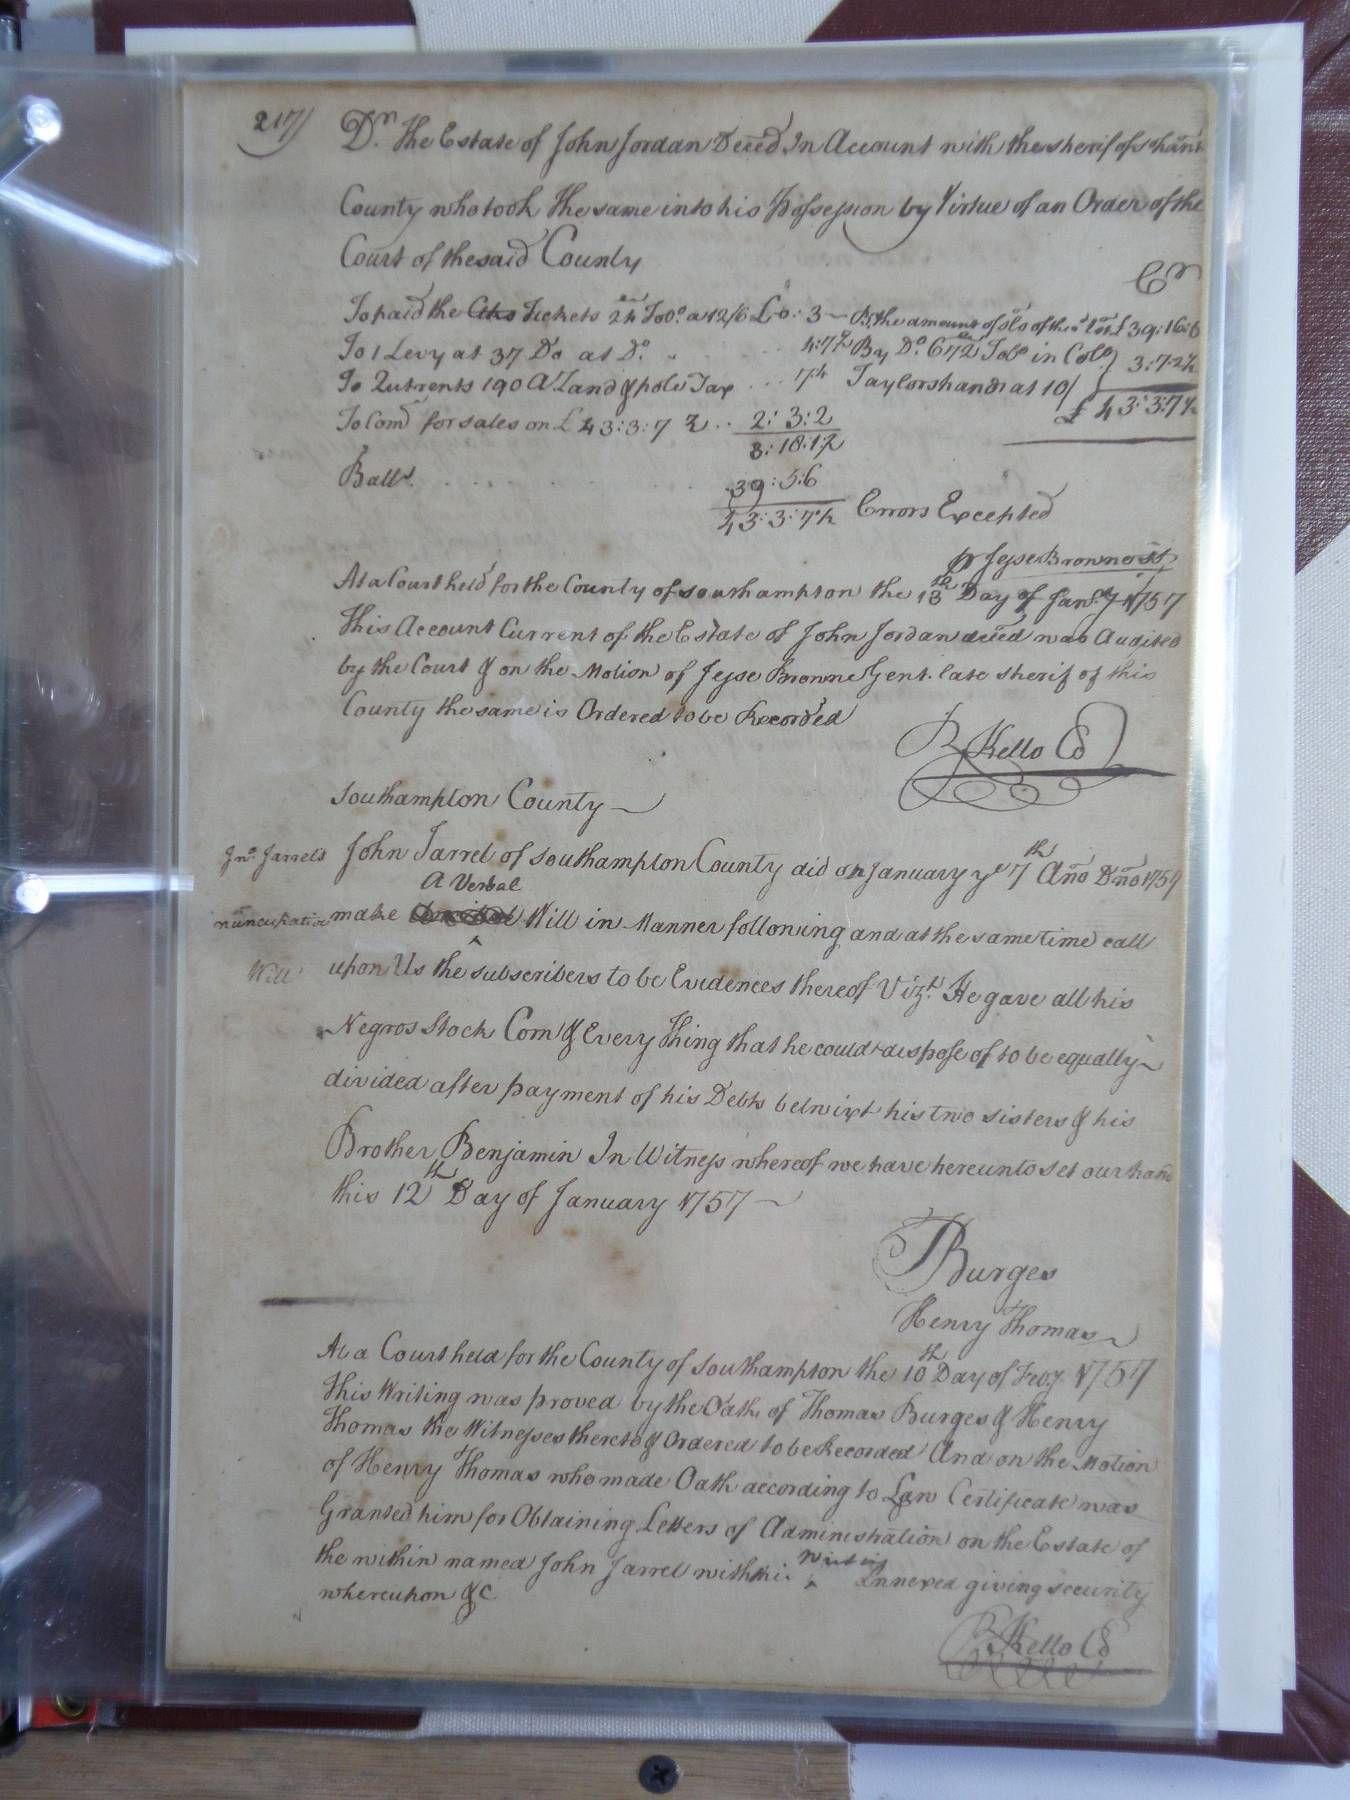 217)
Dr. The Estate of John Jordan Deced In Account with the sherif of
County who took the same into his Possession by Virtue of an Order of the
Court of the said County
Cr
To paid the Tickets 24 Tobo. a 12/6 £0:3 — By the amount of of the £39:16:6
To 1 Levy at 37 Do at Do. 4:7½ By Do. 672 Tobo in Colo.
To Quitrents 190 A Land & pole Tax ... 7:4 Taylors hands at 10/ 3:7:2½
To Com for sales on £43:3:7½ .. 2:3:2 £43:3:7½
3:18:1½
Balla. 39:5:6
43:3:7½ Errors Excepted
pr Jesse Browne
At a Court held for the County of Southampton the 13th Day of Jany 1757
This Account Current of the Estate of John Jordan deced was Audited
by the Court & on the Motion of Jesse Browne Gent. late sherif of this
County the same is Ordered to be Recorded
R Kello
Southampton County
Jno. Jarrels John Jarrel of Southampton County did on January ye 7th Ano Dno 1757
A Verbal
nuncupative make Will in Manner following and at the same time call
Will upon Us the subscribers to be Evidences thereof Vizt. He gave all his
Negros Stock Corn & Every Thing that he could dispose of to be equally
divided after payment of his Debts betwixt his two sisters & his
Brother Benjamin In Witness whereof we have hereunto set our hand
this 12th Day of January 1757
Burges
Henry Thomas
At a Court held for the County of Southampton the 10th Day of Feby 1757
This Writing was proved by the Oath of Thomas Burges & Henry
Thomas the Witnesses thereto & Ordered to be Recorded And on the Motion
of Henry Thomas who made Oath according to Law Certificate was
Granted him for Obtaining Letters of Administration on the Estate of
Writing
the within named John Jarrel with Annexed giving security
whereupon &c
R Kello